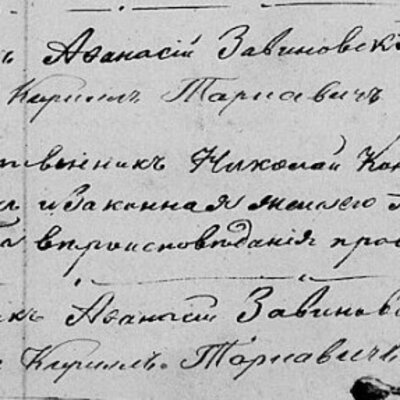 ъ Аѳанасій Завиновск
Кириллъ Тарнавичъ
твенникъ Николай Кон
и законная жена его
вѣроисповѣданія прав
икъ Аѳанасій Завиновс
Кириллъ Тарнавичъ